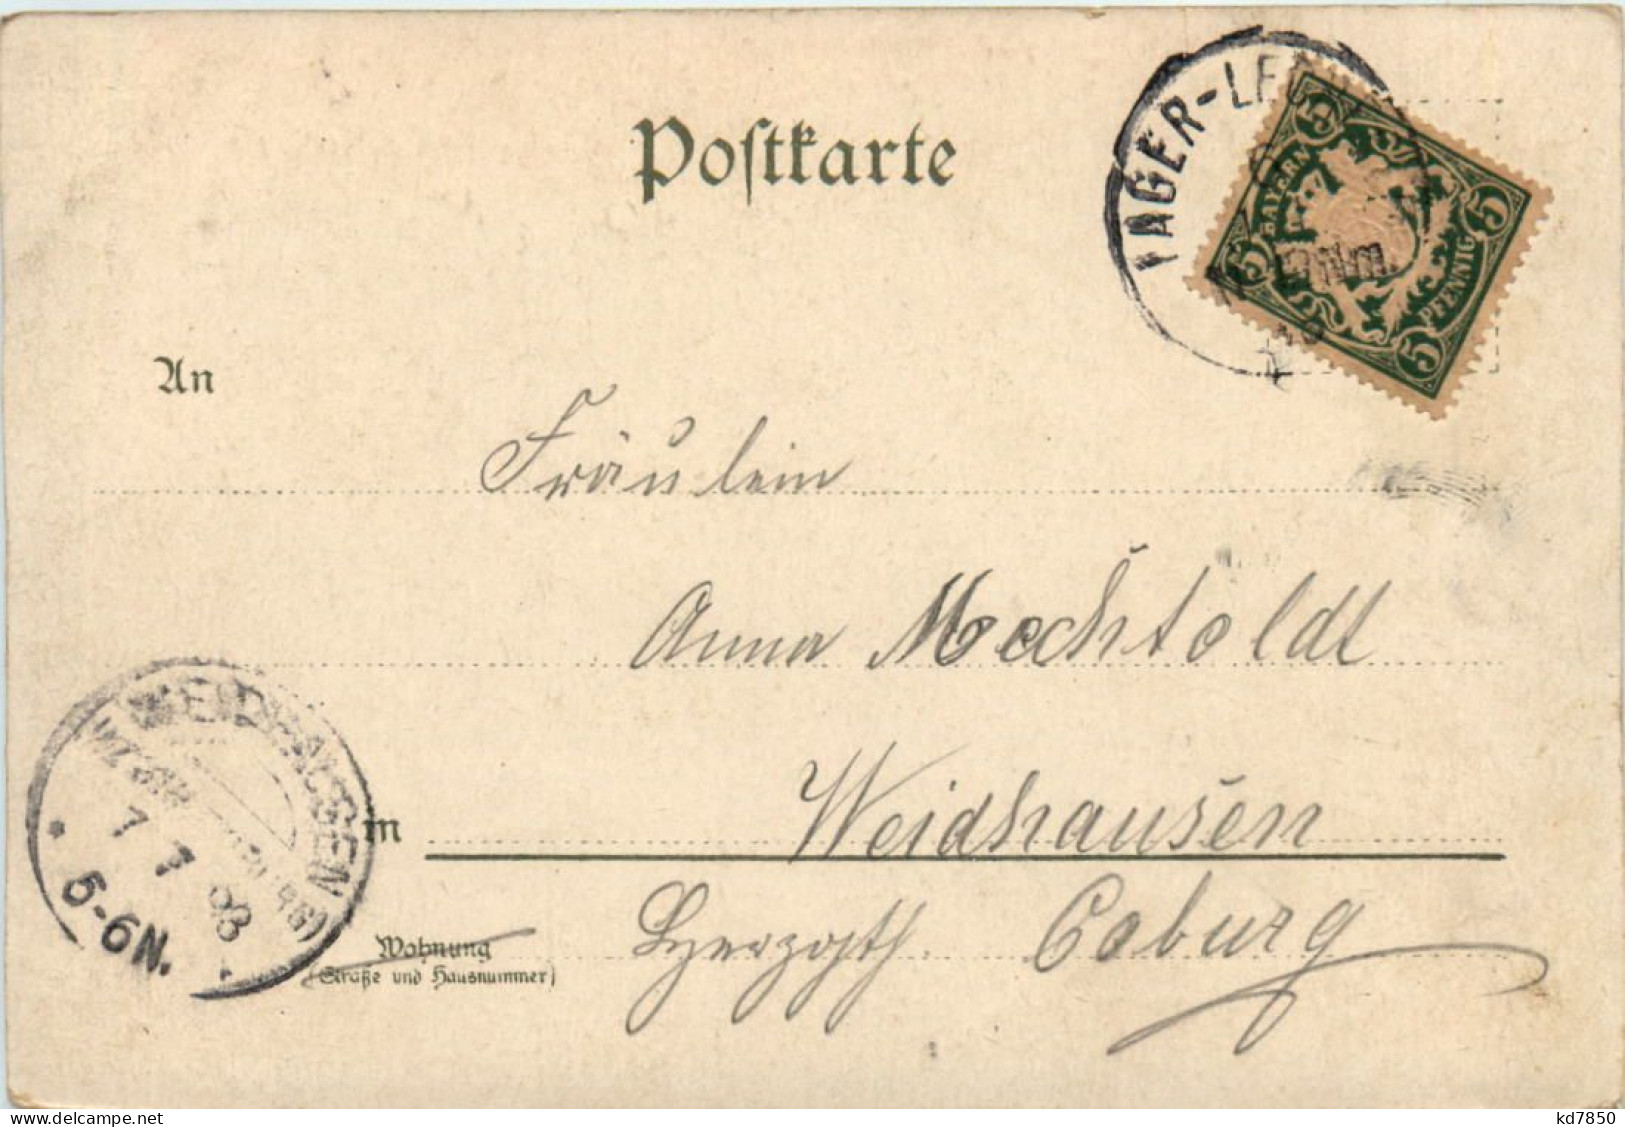 Postkarte
LAGER-LECH
BAYERN
5 5 5 5
PFENNIG
An
Fräulein
Anna Mechtoldt
in Weidhausen
Herzogth. Coburg
Wohnung
(Straße und Hausnummer)
WEIDHAUSEN
7 7 98
5-6N.
www.delcampe.net
kd7850